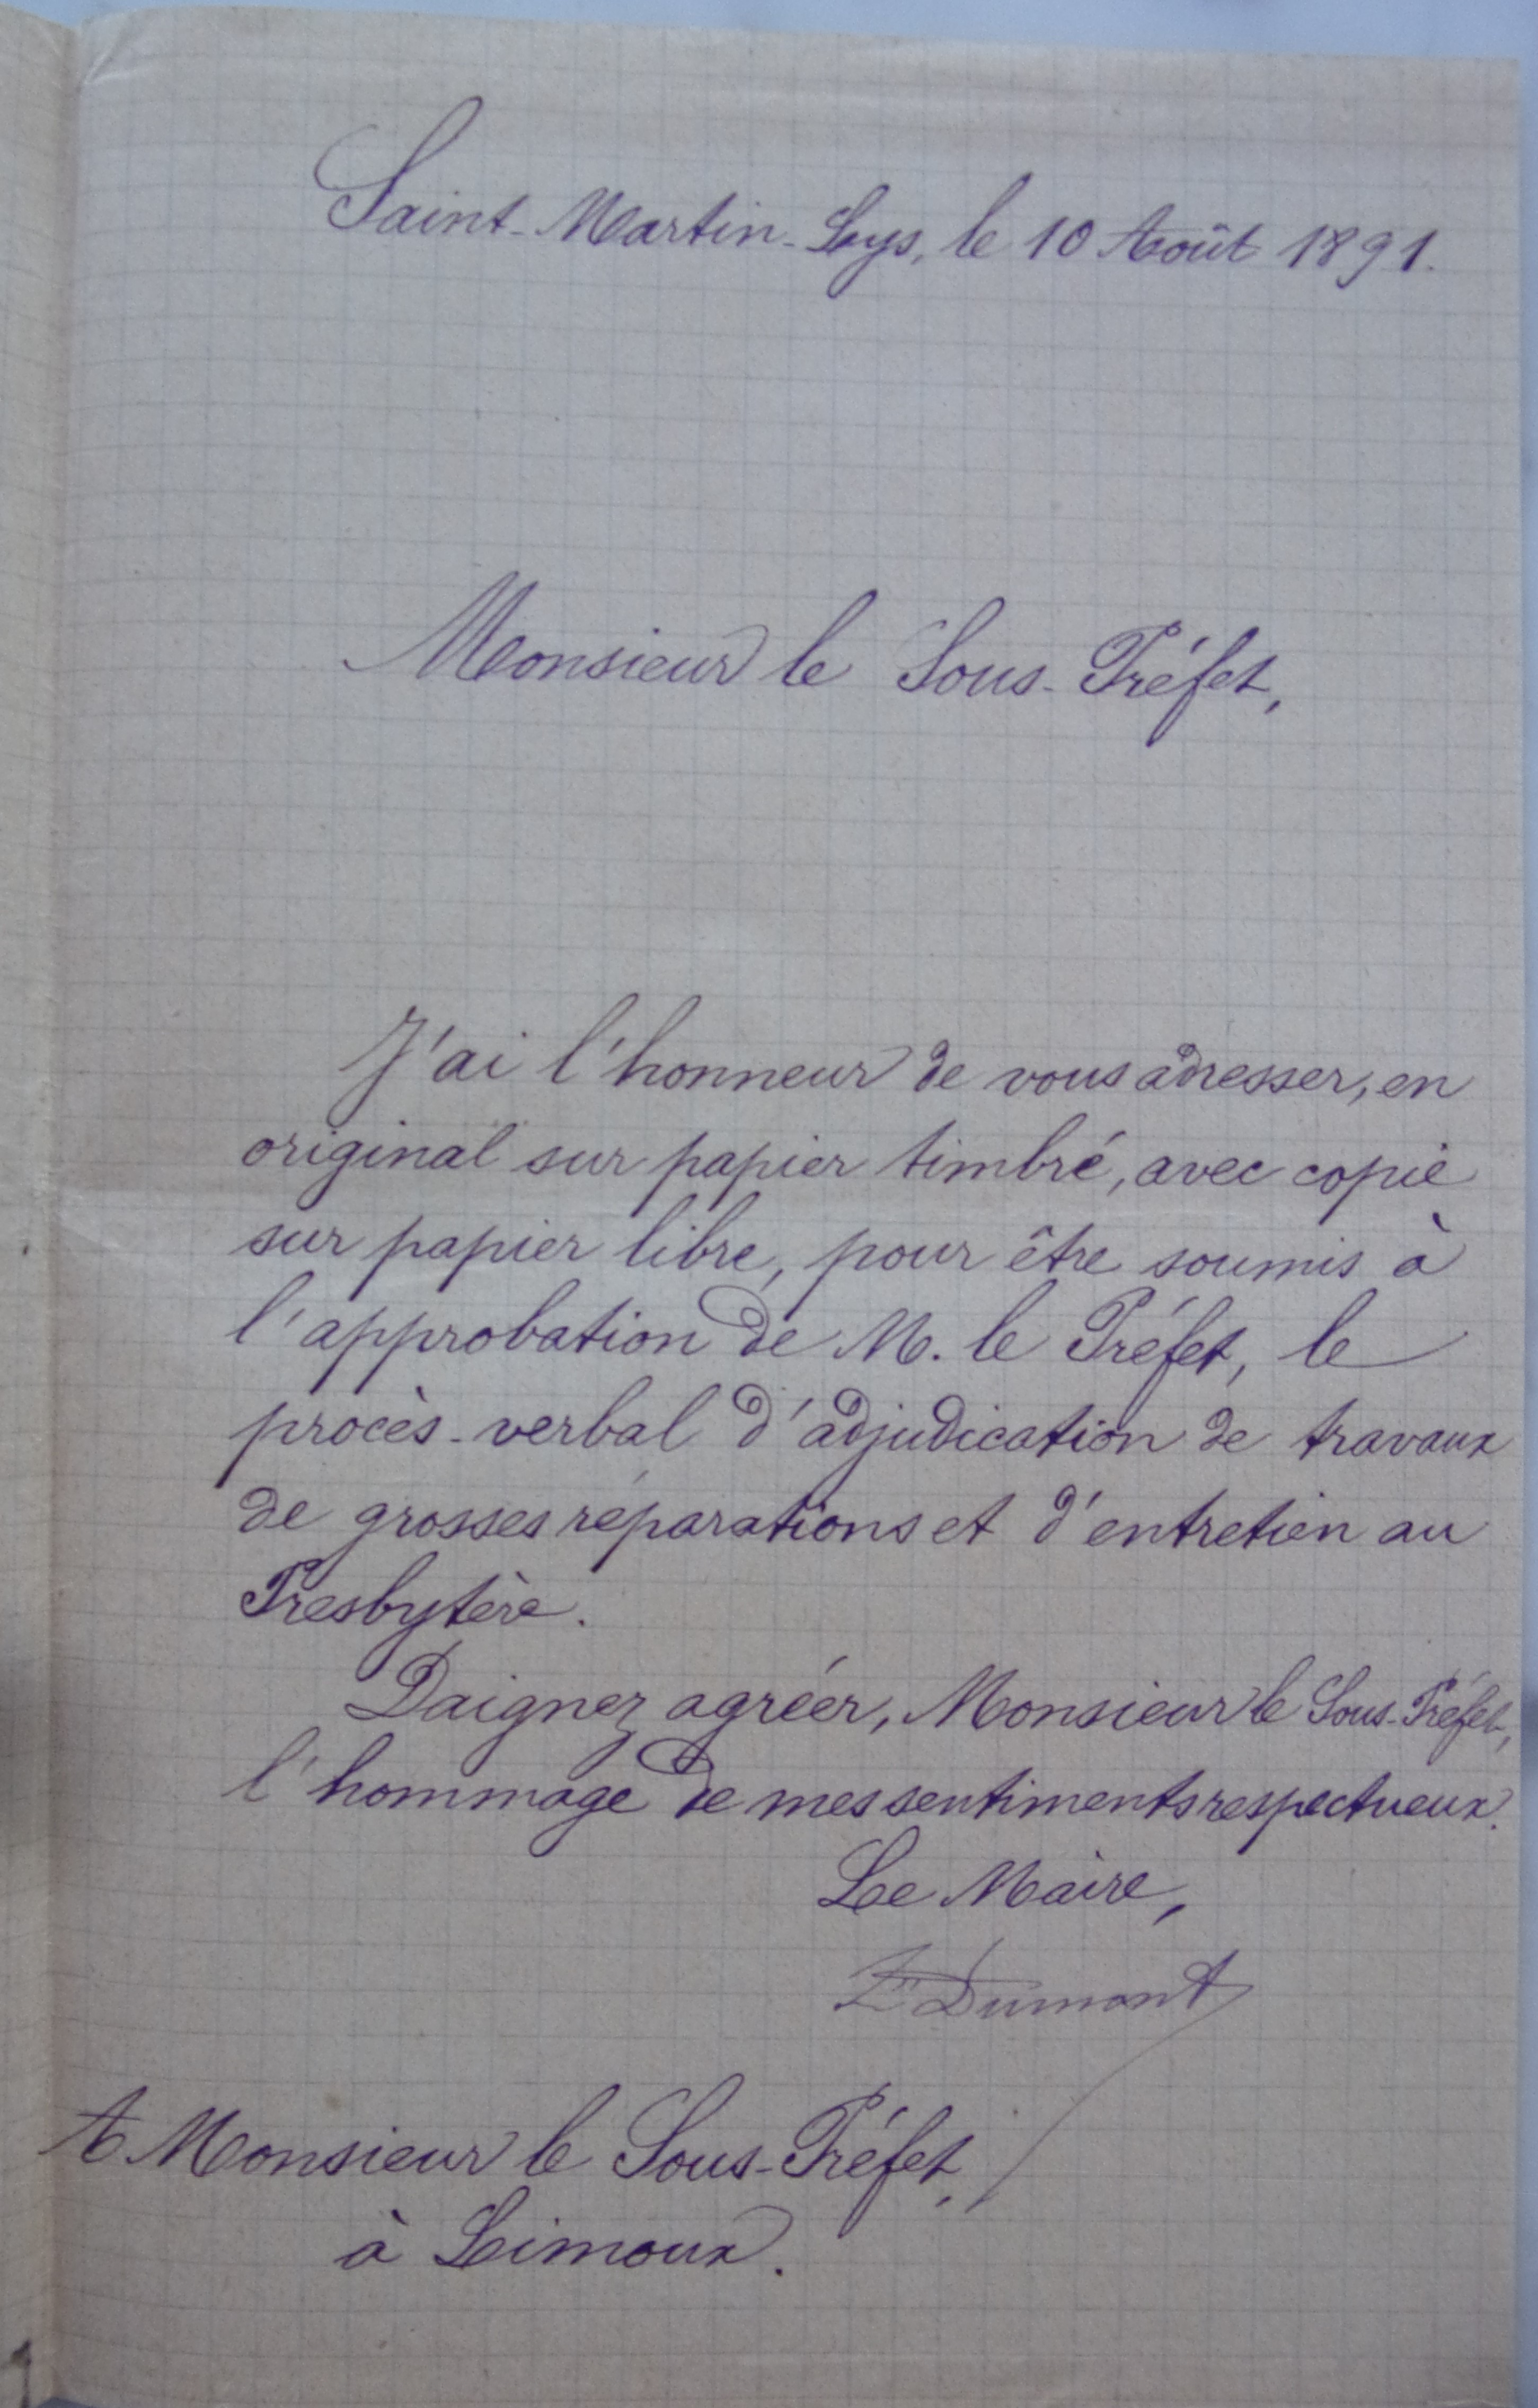 Saint-Martin-Lys, le 10 Août 1891.
Monsieur le Sous-Préfet,
J'ai l'honneur de vous adresser, en
original sur papier timbré, avec copie
sur papier libre, pour être soumis à
l'approbation de M. le Préfet, le
procès-verbal d'adjudication de travaux
de grosses réparations et d'entretien au
Presbytère.
Daignez agréer, Monsieur le Sous-Préfet,
l'hommage de mes sentiments respectueux.
Le Maire,
Dumont
A Monsieur le Sous-Préfet,
à Limoux.